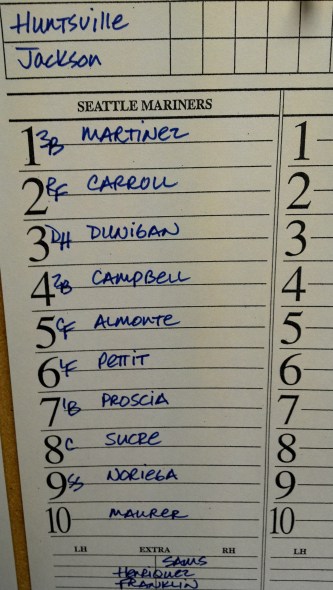 Huntsville
Jackson
SEATTLE MARINERS
1 3B MARTINEZ 1
2 RF CARROLL 2
3 DH DUNIGAN 3
4 2B CAMPBELL 4
5 CF ALMONTE 5
6 LF PETTIT 6
7 1B PROSCIA 7
8 C SUCRE 8
9 SS NORIEGA 9
10 MAURER 10
LH EXTRA RH LH
SAMS
HENRIQUEZ
FRANKLIN